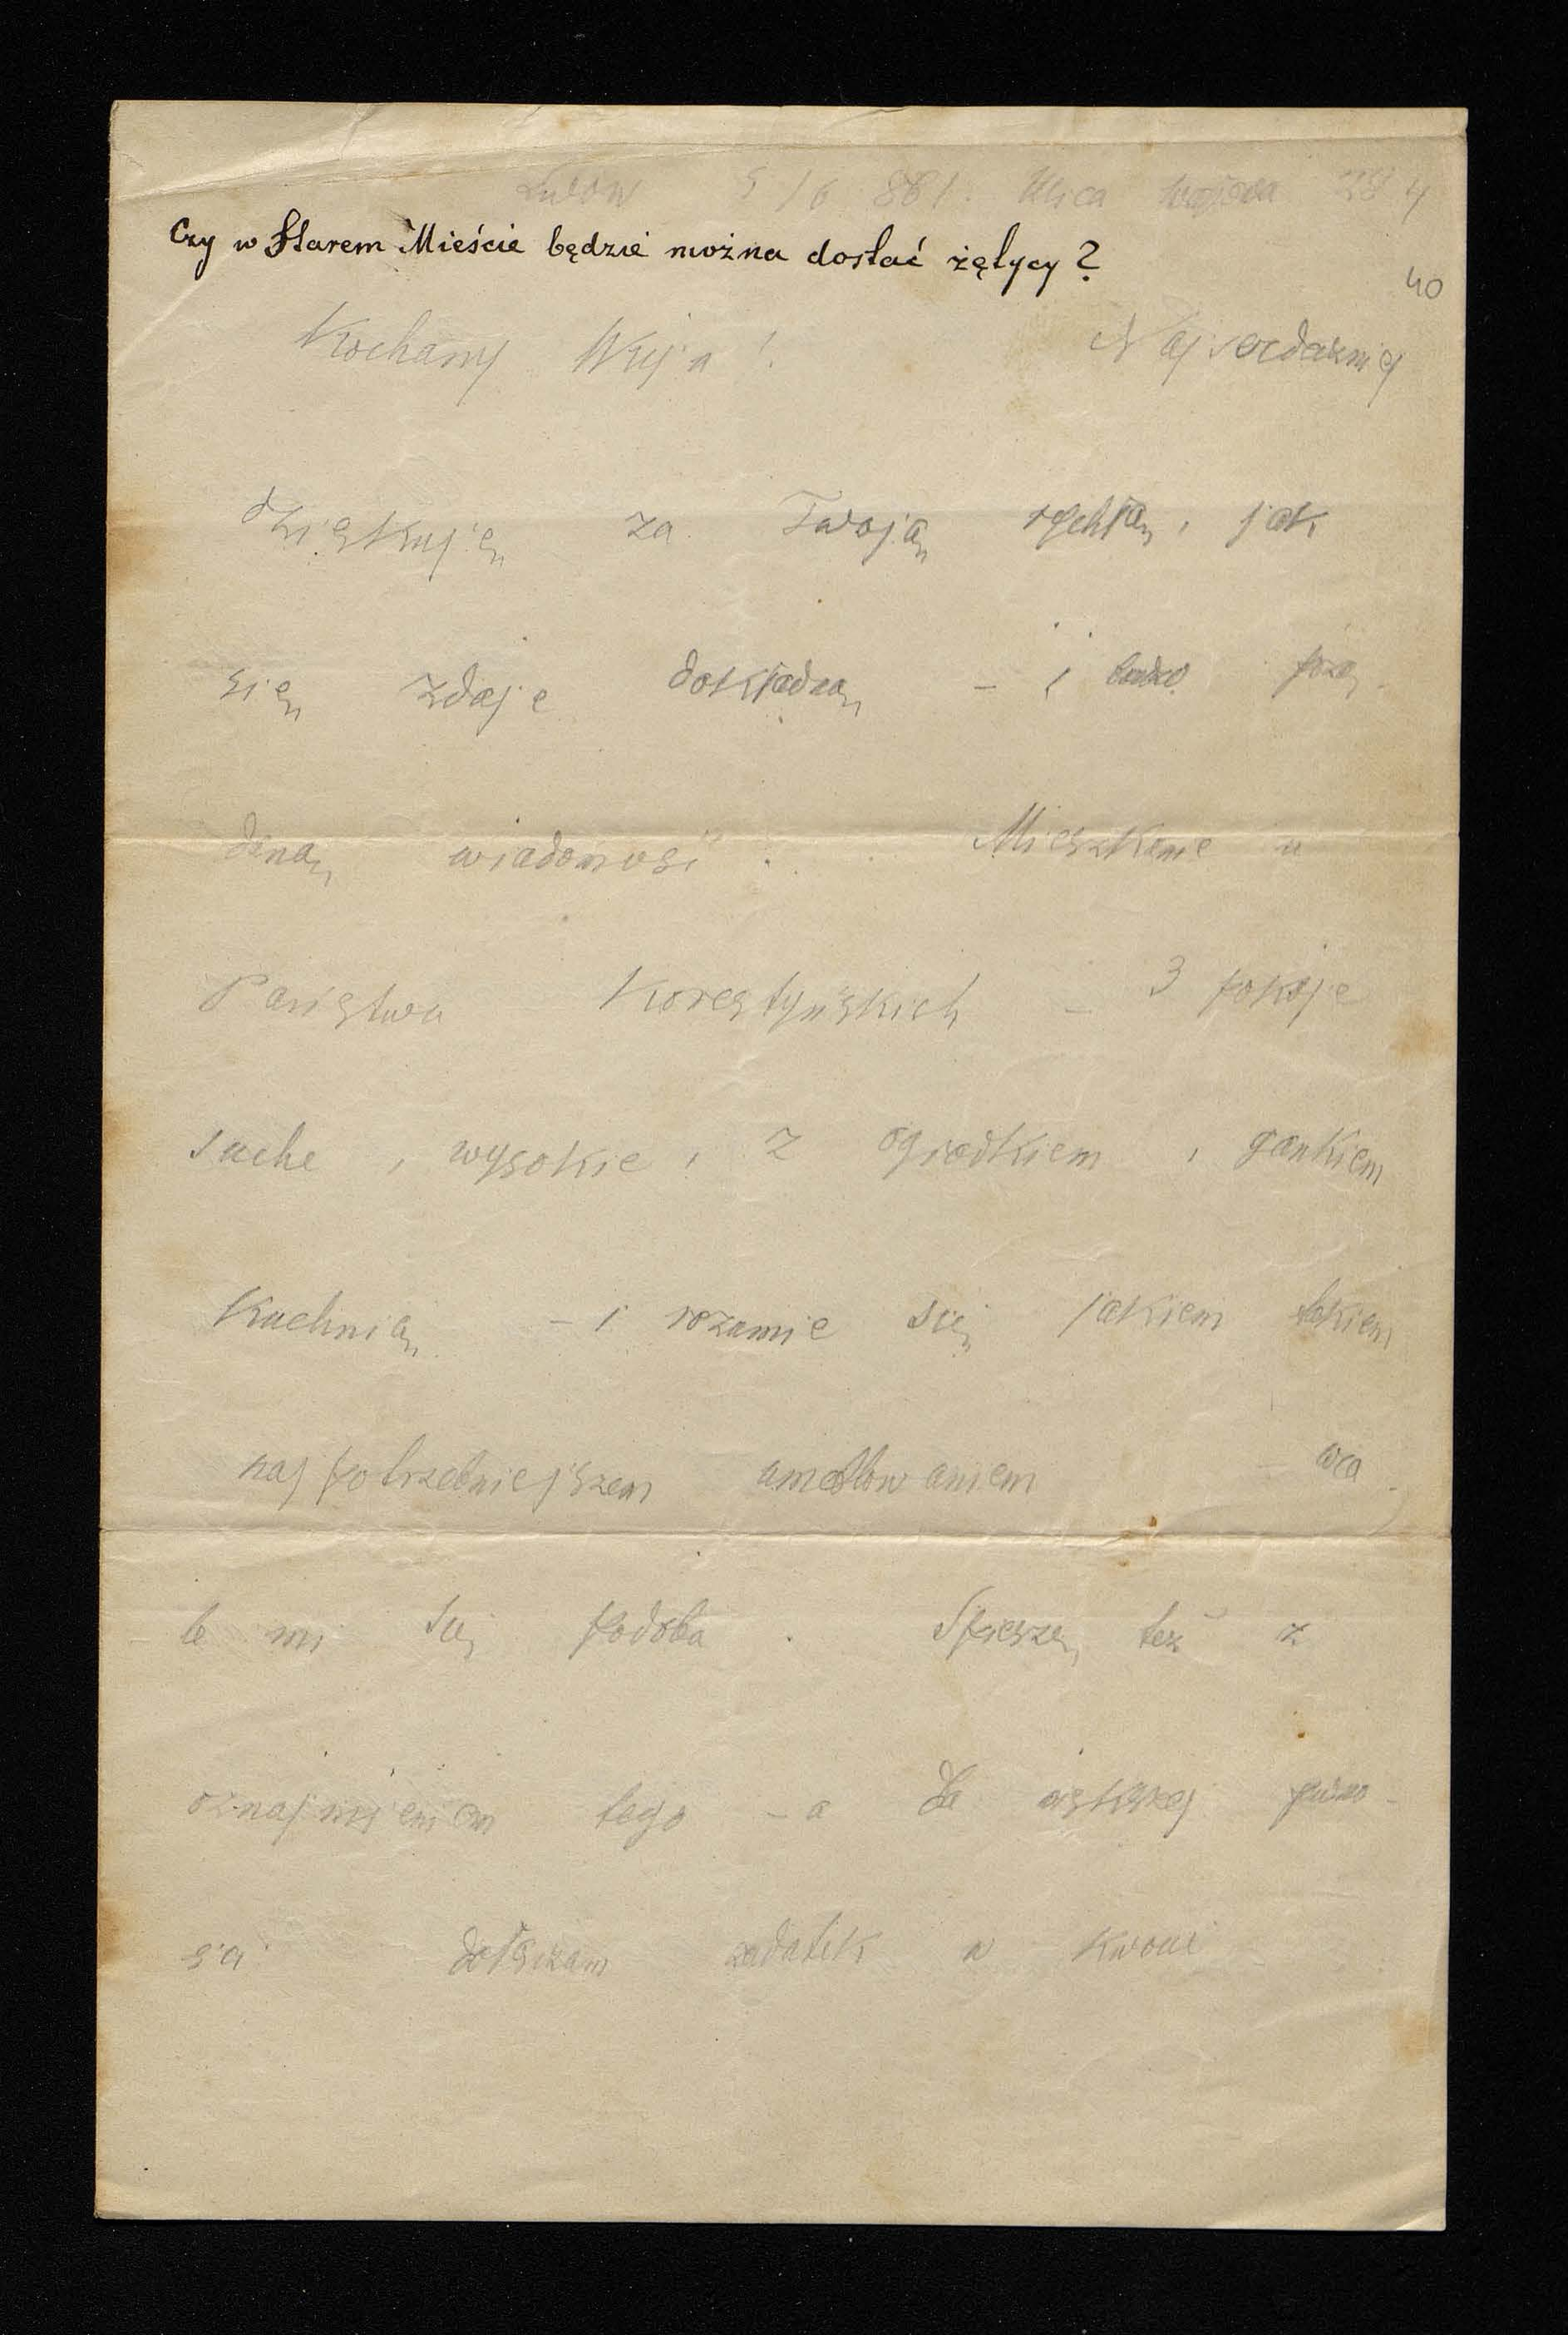 Lwów 5/6 881. Ulica
Czy w Starem Mieście będzie można dostać żętycy?
40
Kochany Wuju! Najserdeczniej
dziękuję za Twoją rychłą, jak
się zdaje dokładną – i bardzo pożą-
daną wiadomość. Mieszkanie u
Państwa Korestyńskich – 3 pokoje
suche, wysokie, z ogródkiem, gankiem
Kuchnią – i rozumie się jakiem takiem
najpotrzebniejszem umeblowaniem – wca-
le mi się podoba. Spieszę też z
oznajmieniem tego – a dla większej pewno-
ści dołączam zadatek w kwocie